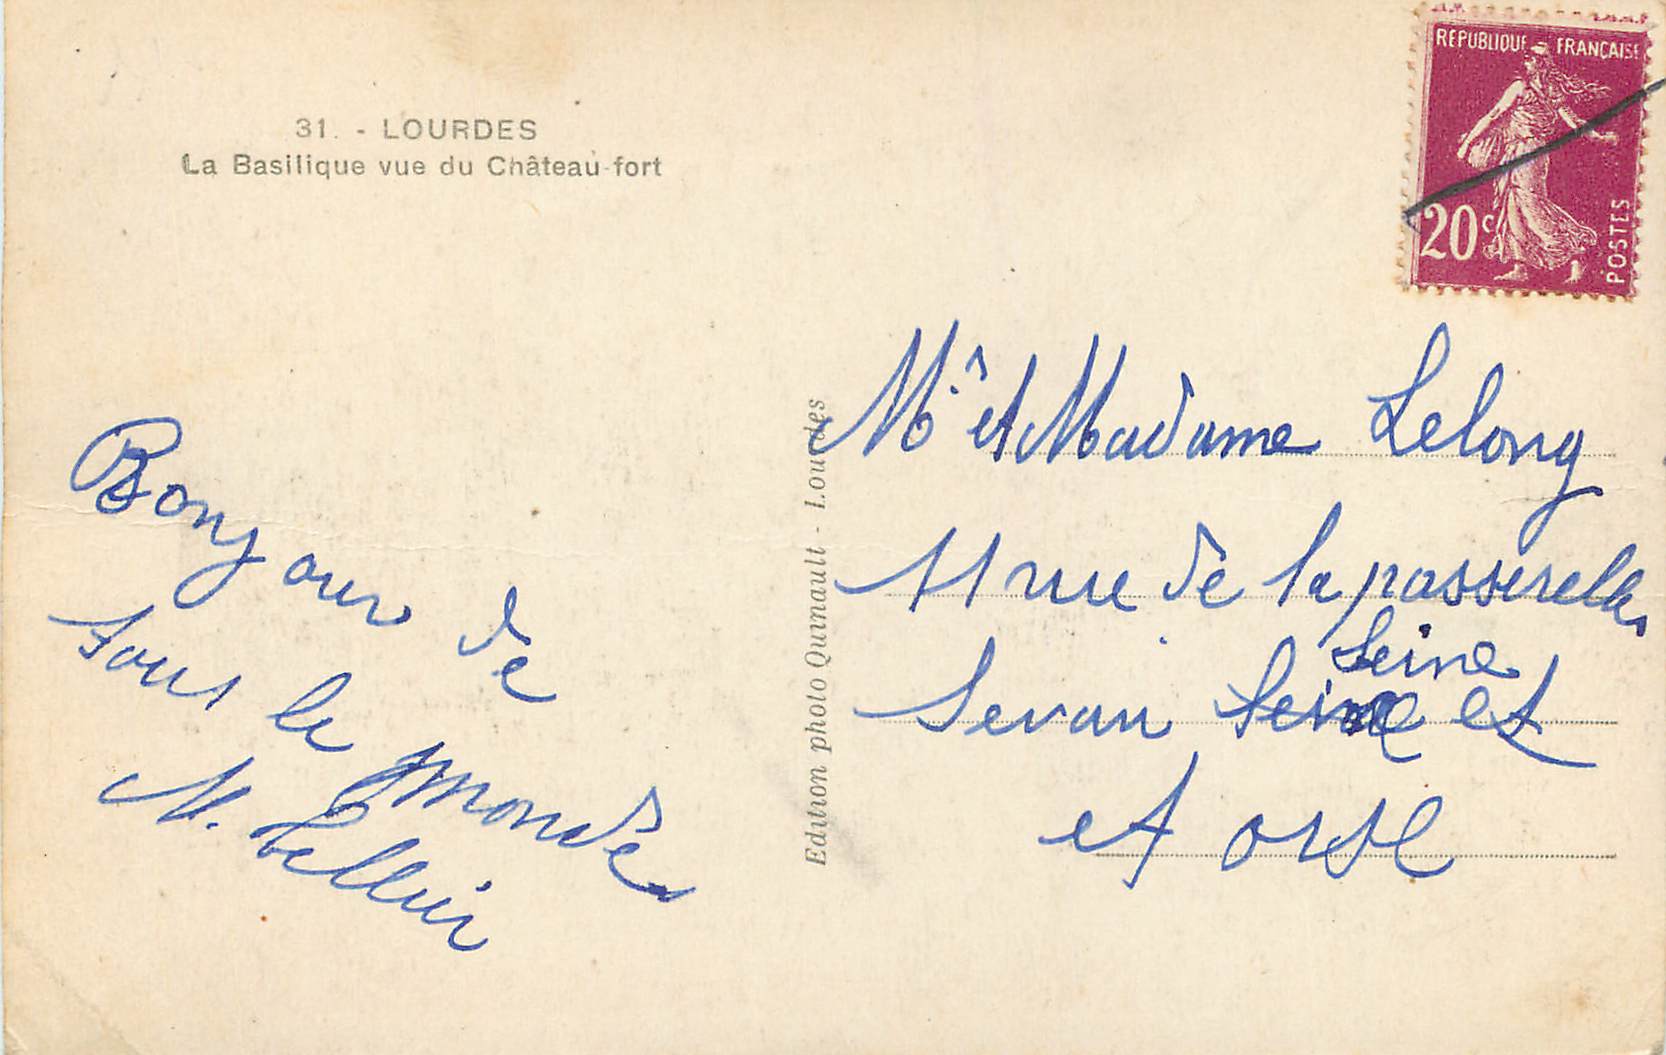 31. - LOURDES
La Basilique vue du Château-fort
REPUBLIQUE FRANÇAISE
20c
POSTES
Bonjour de
tous le monde
Edition photo Quinault - Lourdes
Mr et Madame Lelong
11 rue de la passerelle
Seine
Sevan Seine et
et oise